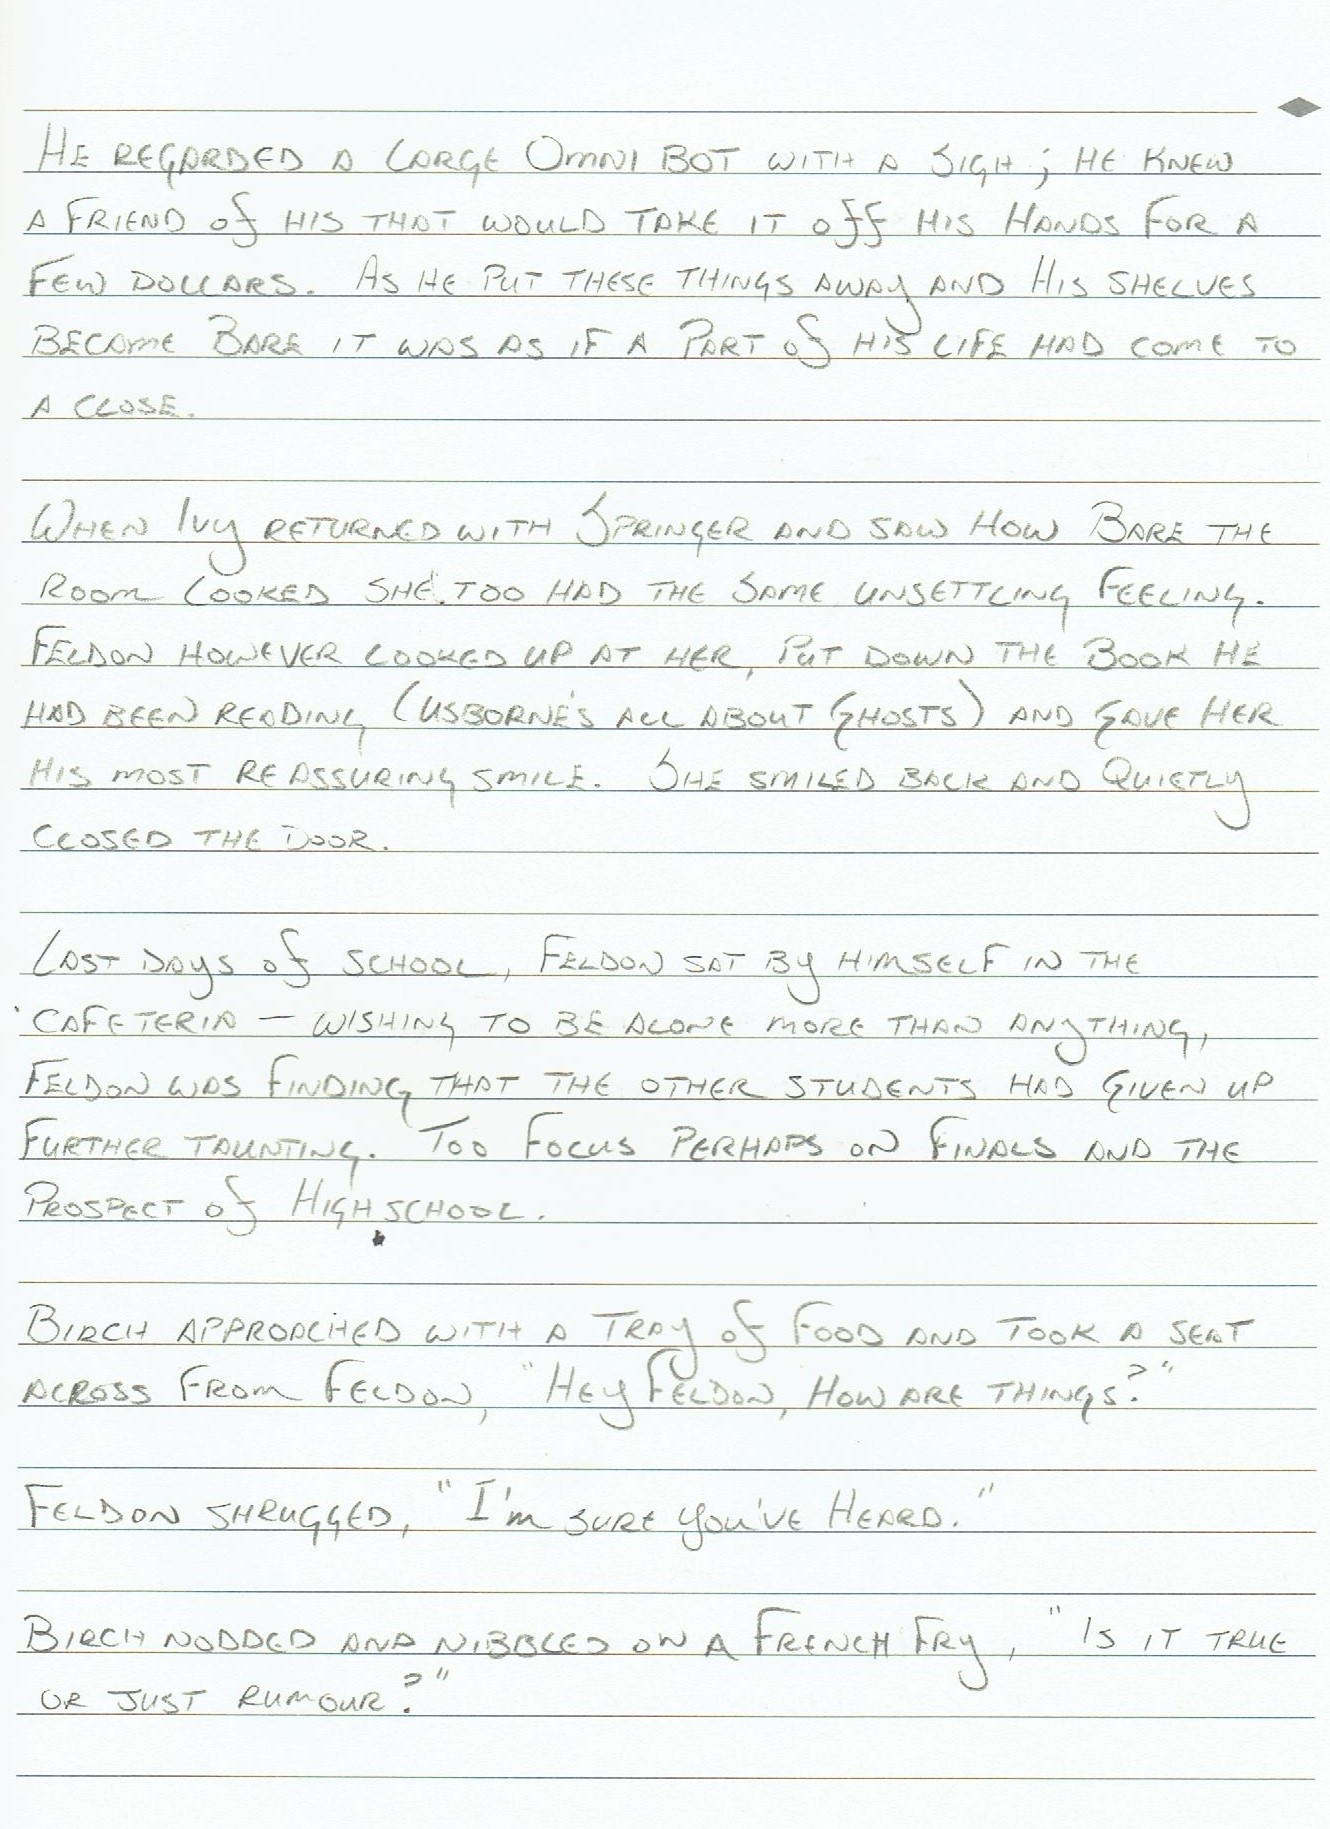 He regarded a large Omni Bot with a sigh; he knew
a friend of his that would take it off his hands for a
few dollars. As he put these things away and his shelves
became bare it was as if a part of his life had come to
a close.
When Ivy returned with Springer and saw how bare the
room looked she too had the same unsettling feeling.
Feldon however looked up at her, put down the book he
had been reading (Usborne's All About Ghosts) and gave her
his most reassuring smile. She smiled back and quietly
closed the door.
Last days of school, Feldon sat by himself in the
cafeteria — wishing to be alone more than anything,
Feldon was finding that the other students had given up
further taunting. Too focus perhaps on finals and the
prospect of high school.
Birch approached with a tray of food and took a seat
across from Feldon, "Hey Feldon, how are things?"
Feldon shrugged, "I'm sure you've heard."
Birch nodded and nibbled on a french fry, "Is it true
or just rumour?"